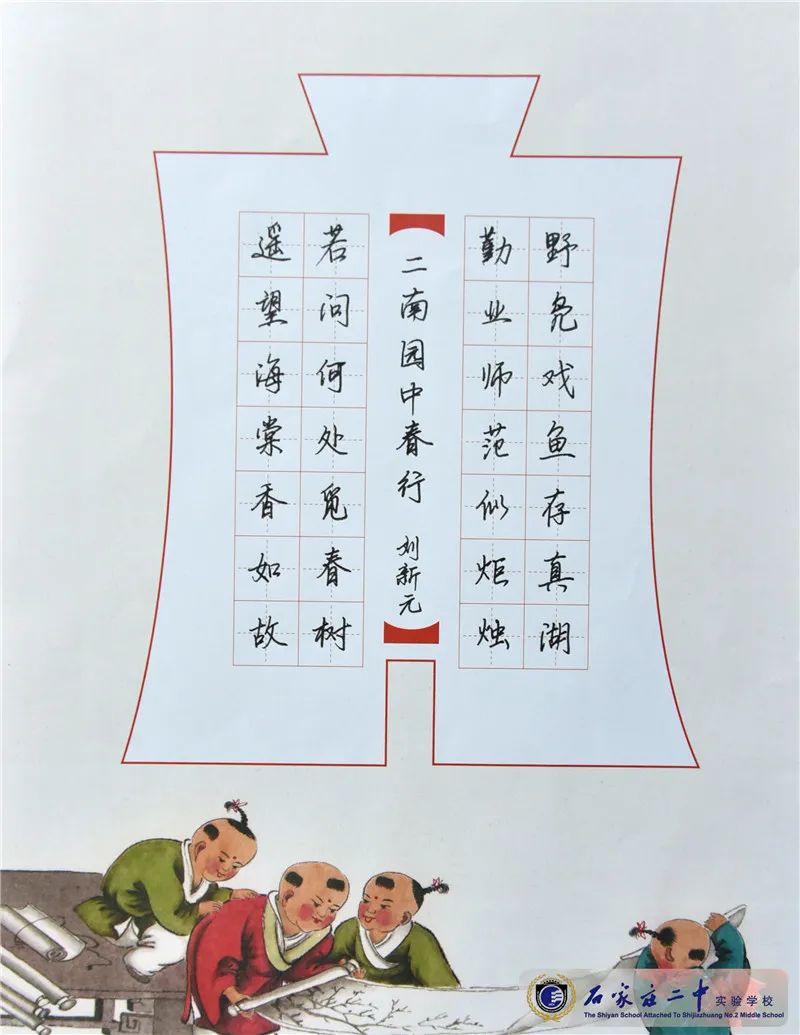 野凫戏鱼存真湖
勤业师范似炬烛
二南园中春行 刘新元
若问何处觅春树
遥望海棠香如故
石家庄二中 实验学校
The Shiyan School Attached To Shijiazhuang No.2 Middle School